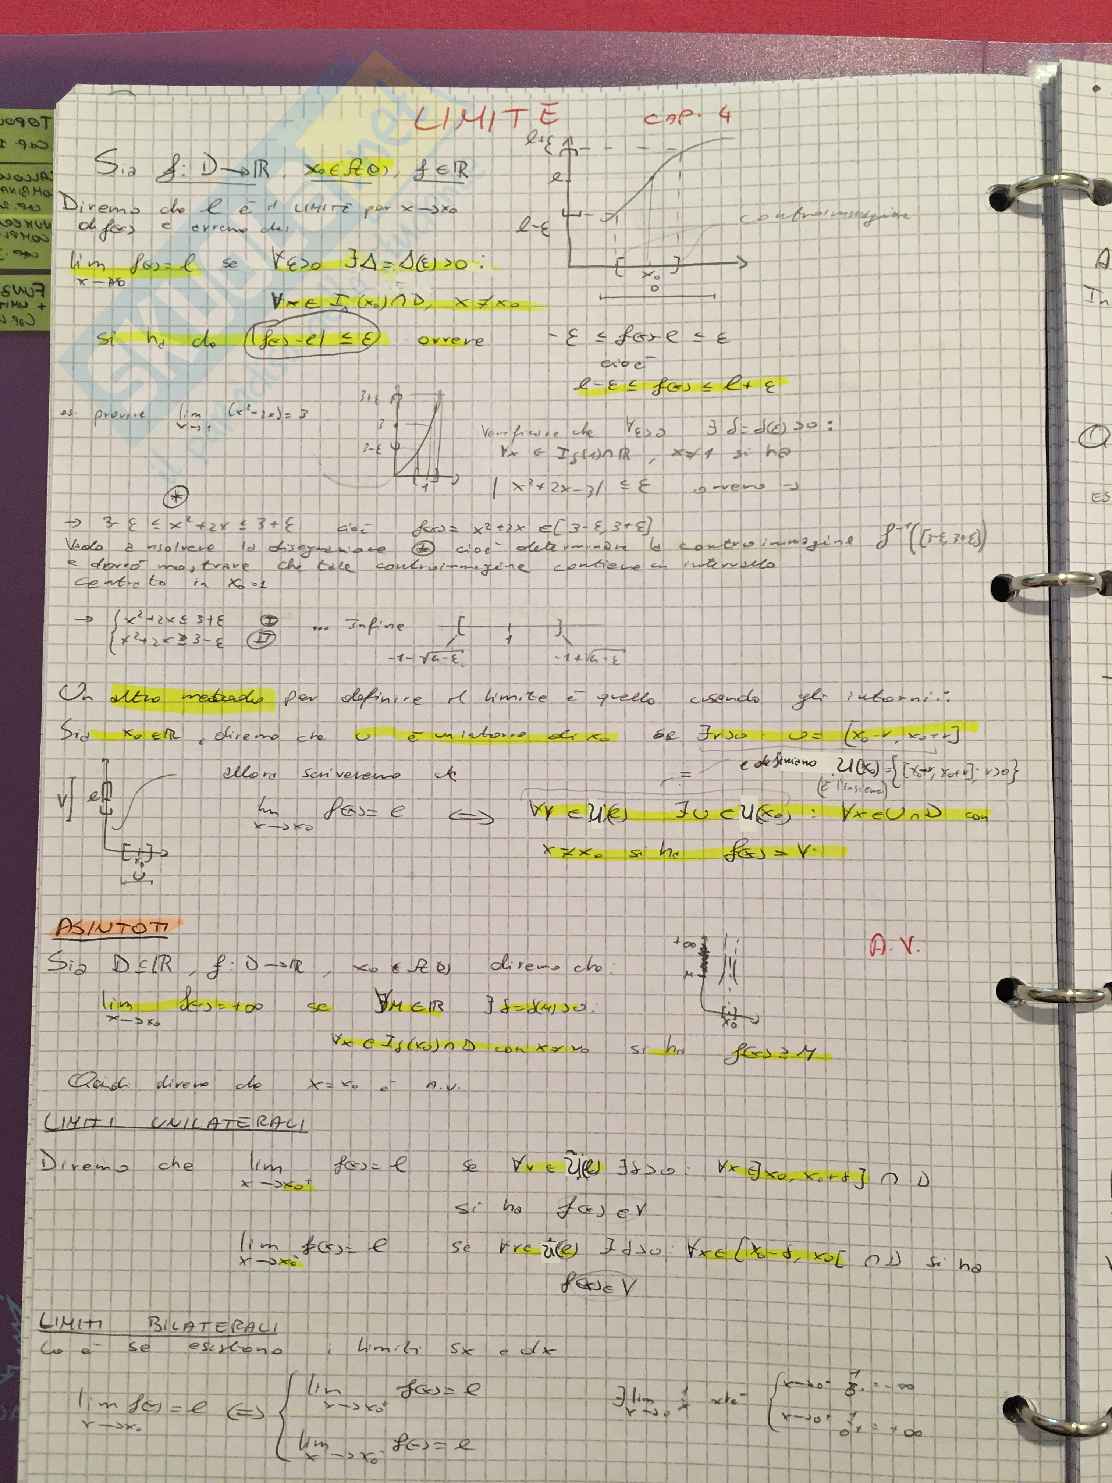 LIMITE CAP. 4
Sia f: D→ℝ, x₀∈A(D), f∈ℝ
Diremo che l è il LIMITE per x→x₀
di f(x) e avremo che:
lim f(x)=l se ∀ε>0 ∃Δ=Δ(ε)>0:
x→x₀
∀x∈I (x₀)∩D, x≠x₀
si ha che |f(x)-l| ≤ ε ovvero -ε ≤ f(x)-l ≤ ε
cioè
l-ε ≤ f(x) ≤ l+ε
l+ε
l
l-ε
x₀
controimmagine
es. provare lim (x²-2x)=3
x→1
3+ε
3
3-ε
1
Verificare che ∀ε>0 ∃δ=δ(ε)>0:
∀x∈I_δ(1)∩ℝ, x≠1 si ha
|x²+2x-3| ≤ε ovvero →
→ 3-ε ≤ x²+2x ≤ 3+ε cioè f(x)= x²+2x ∈[3-ε, 3+ε]
Vado a risolvere la disequazione * cioè determinare la controimmagine f⁻¹([3-ε, 3+ε])
e dovrò mostrare che tale controimmagine contiene un intervallo
centrato in x₀=1
→ { x²+2x≤3+ε I ... Infine [ 1 ]
{ x²+2x≥3-ε II
-1-√4-ε -1+√4-ε
Un altro metodo per definire il limite è quello usando gli intorni:
Sia x₀∈ℝ, diremo che U è un intorno di x₀ se ∃r>0: U= [x₀-r, x₀+r]
e definiamo U(x₀)={[x₀-r, x₀+r]: r>0}
(È l'insieme)
allora scriveremo che
lim f(x)=l ⟺ ∀V∈U(l) ∃U∈U(x₀): ∀x∈U∩D con
x→x₀
x≠x₀ si ha f(x)=V.
V l
U
ASINTOTI
A.V.
Sia D⊆ℝ, f: D→ℝ, x₀∈A(D) diremo che:
lim f(x)=+∞ se ∀M∈ℝ ∃δ=δ(M)>0:
x→x₀
∀x∈I_δ(x₀)∩D con x≠x₀ si ha f(x)≥M
+∞
M
x₀
Quindi diremo che x=x₀ è A.V.
LIMITI UNILATERALI
Diremo che lim f(x)=l se ∀V∈U(l) ∃δ>0: ∀x∈]x₀, x₀+δ] ∩ D
x→x₀⁺
si ha f(x)∈V
lim f(x)=l se ∀V∈U(l) ∃δ>0: ∀x∈[x₀-δ, x₀[ ∩D si ha
x→x₀⁻
f(x)∈V
LIMITI BILATERALI
se esistono i limiti sx e dx
lim f(x)=l ⟺ { lim f(x)=l
x→x₀ x→x₀⁺
lim f(x)=l
x→x₀⁻
∄lim 1/x
x→0
x→0⁻ = -∞
x→0⁺ = +∞